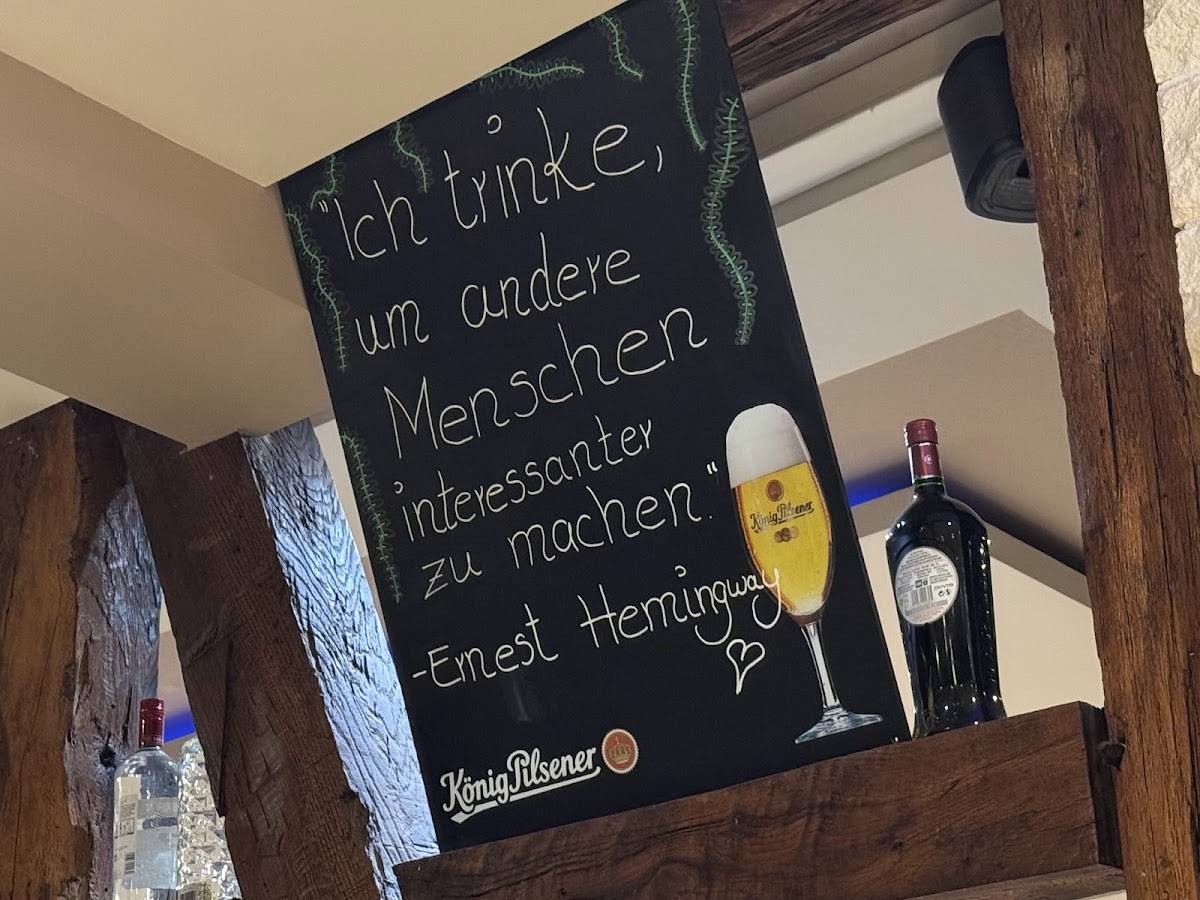 "Ich trinke,
um andere
Menschen
interessanter
zu machen."
-Ernest Hemingway
König Pilsener
König Pilsener